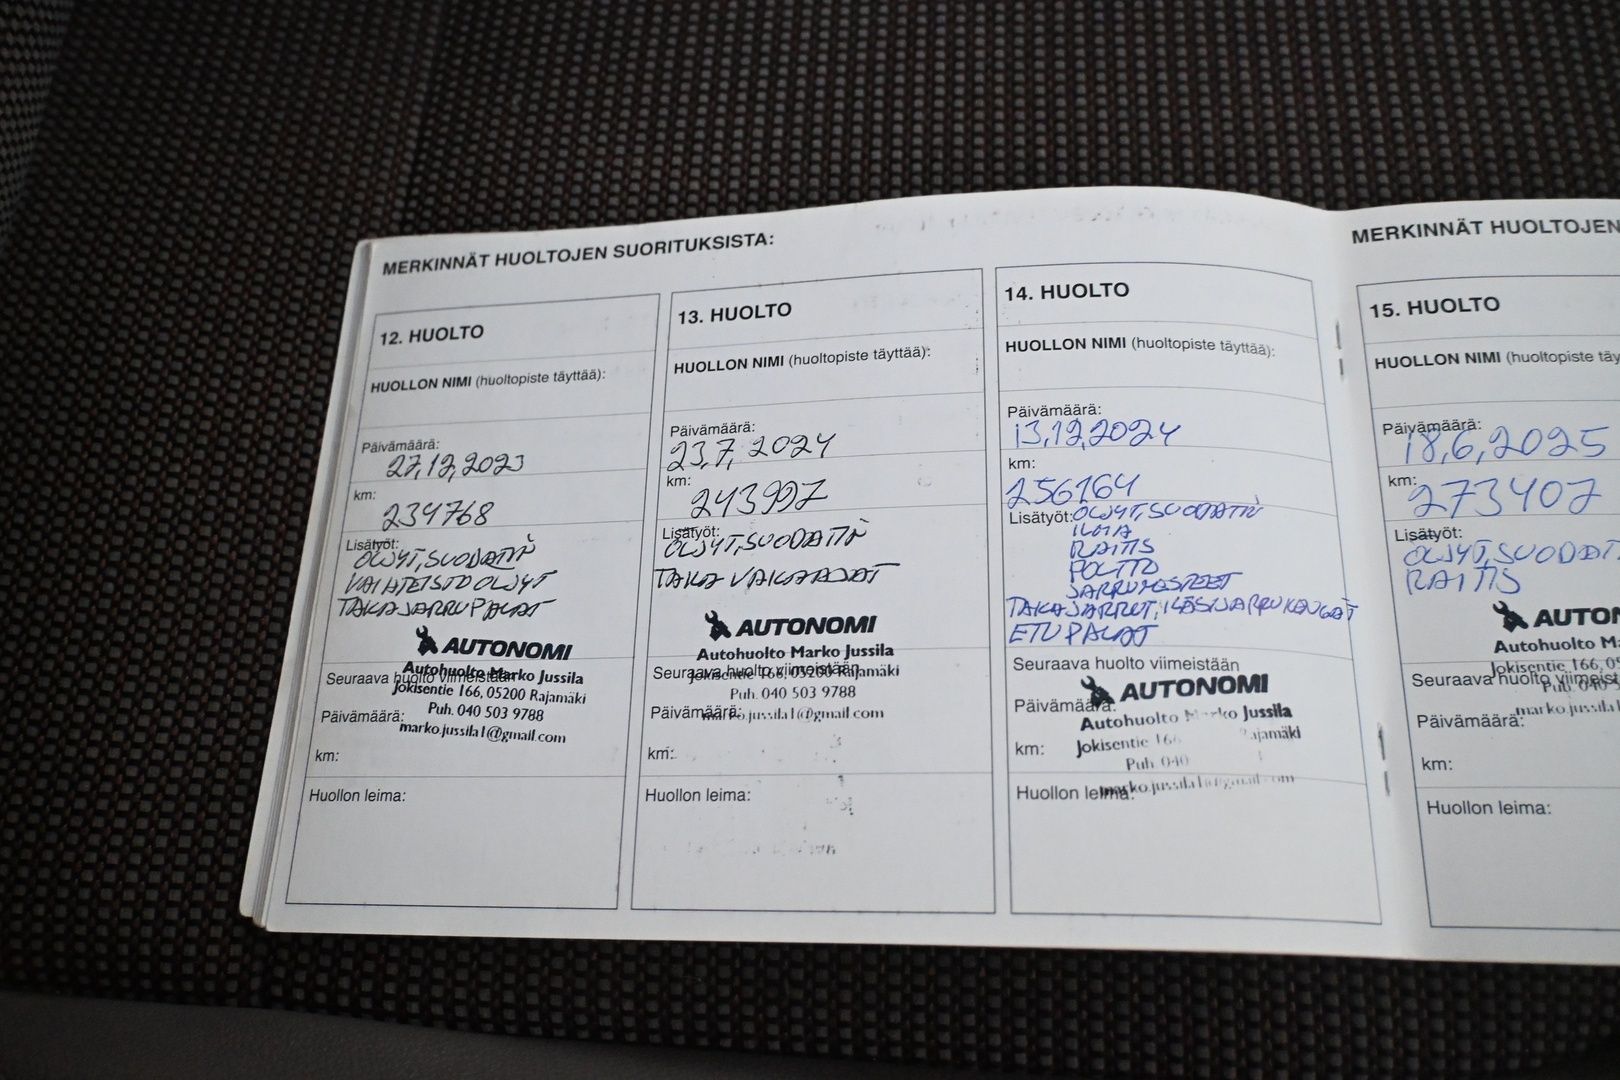 MERKINNÄT HUOLTOJEN SUORITUKSISTA:
12. HUOLTO
HUOLLON NIMI (huoltopiste täyttää):
Päivämäärä:
27,12,2023
km:
234768
Lisätyöt:
ÖLJYT, SUODATIN
VAIHTEISTO ÖLJYT
TAKAJARRUPALAT
AUTONOMI
Autohuolto Marko Jussila
Seuraava huolto viimeistään
Jokisentie 166, 05200 Rajamäki
Puh. 040 503 9788
Päivämäärä:
marko.jussila1@gmail.com
km:
Huollon leima:
13. HUOLTO
HUOLLON NIMI (huoltopiste täyttää):
Päivämäärä:
23,7, 2024
km:
243997
Lisätyöt:
ÖLJYT, SUODATIN
TAKA VAKAAJAT
AUTONOMI
Autohuolto Marko Jussila
Seuraava huolto viimeistään
Jokisentie 166, 05200 Rajamäki
Puh. 040 503 9788
Päivämäärä:
marko.jussila1@gmail.com
km:
Huollon leima:
14. HUOLTO
HUOLLON NIMI (huoltopiste täyttää):
Päivämäärä:
13,12,2024
km:
256164
Lisätyöt: ÖLJYT, SUODATIN
ILMA
RAITIS
POLTTO
JARRUNESTEET
TAKAJARRUT, KÄSIJARRUKENGÄT
ETUPALAT
Seuraava huolto viimeistään
AUTONOMI
Päivämäärä:
Autohuolto Marko Jussila
km:
Jokisentie 166 Rajamäki
Puh. 040
marko.jussila1@gmail.com
Huollon leima:
MERKINNÄT HUOLTOJEN
15. HUOLTO
HUOLLON NIMI (huoltopiste täy
Päivämäärä:
18,6,2025
km:
273407
Lisätyöt:
ÖLJYT, SUODAT
RAITIS
AUTON
Autohuolto Ma
Jokisentie 166, 05
Seuraava huolto viimeist
Puh. 040 5
marko.jussila
Päivämäärä:
km:
Huollon leima: